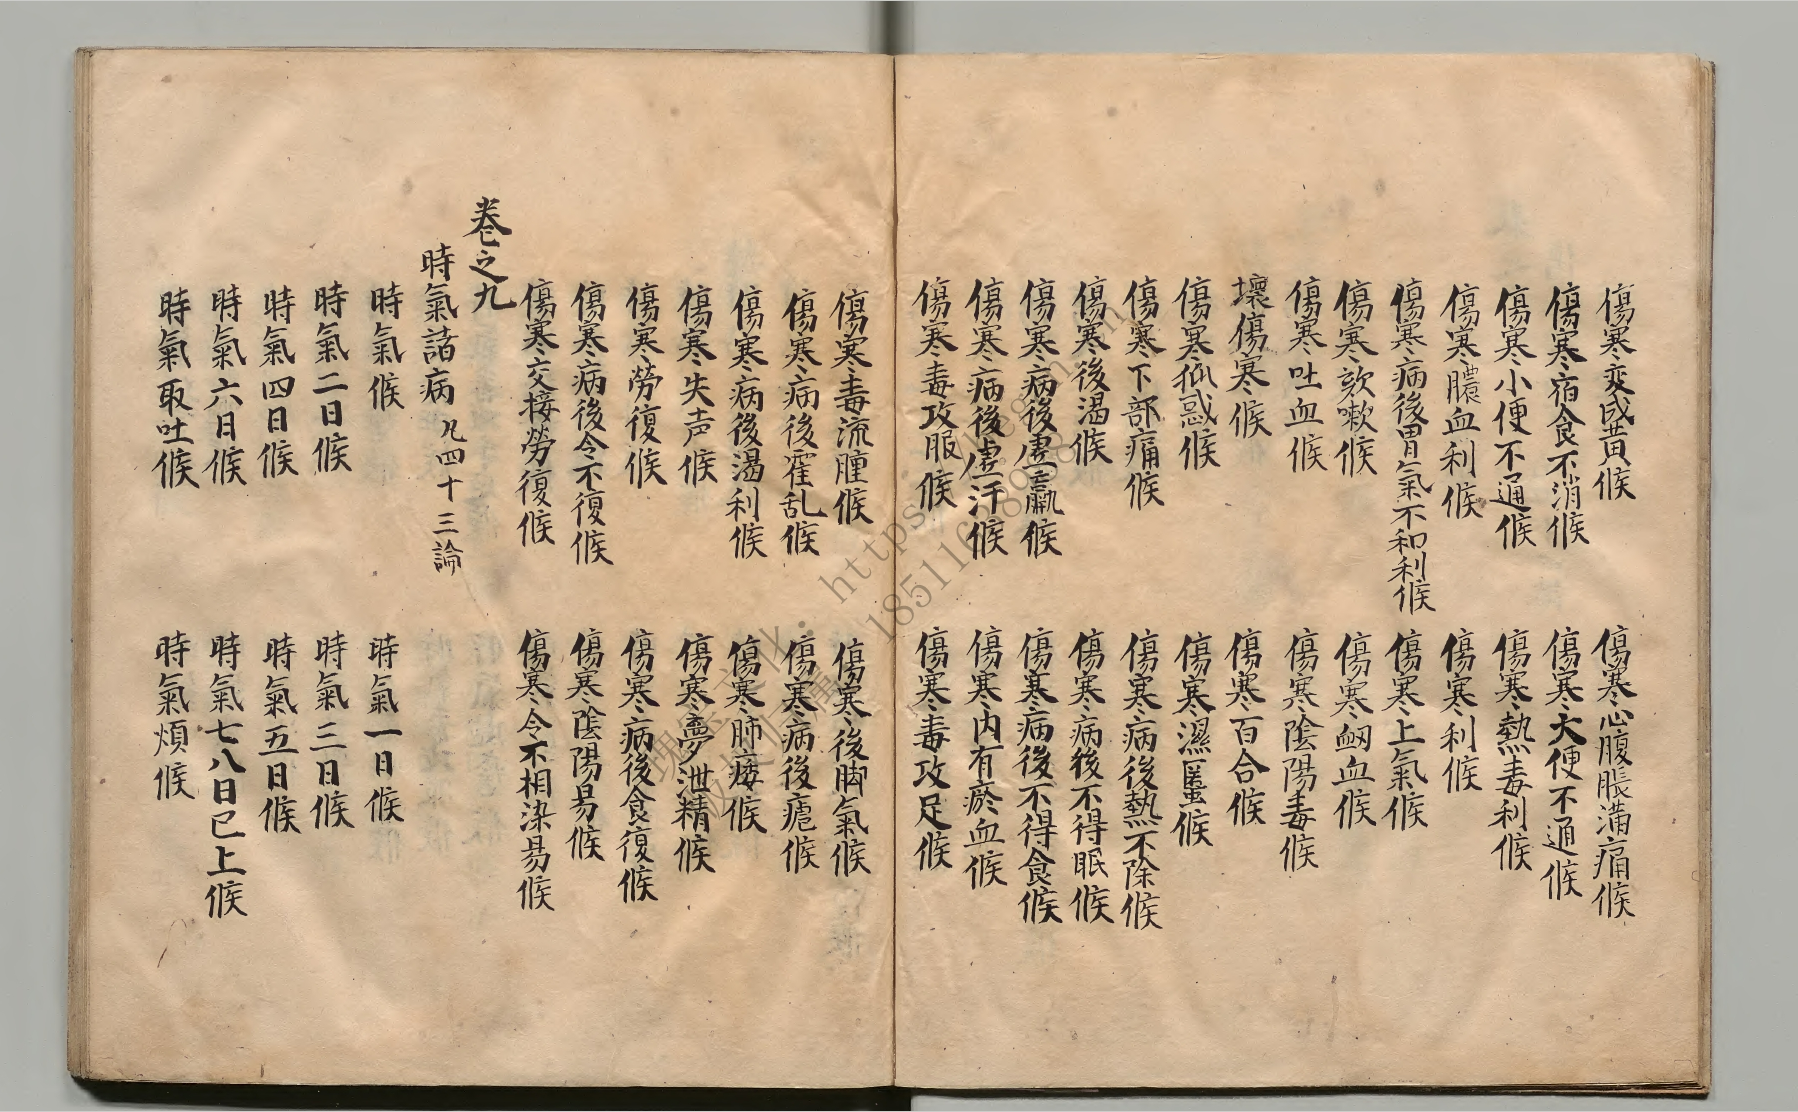 傷寒変成黄候 傷寒心腹脹満痛候
傷寒宿食不消候 傷寒大便不通候
傷寒小便不通候 傷寒熱毒利候
傷寒膿血利候 傷寒利候
傷寒病後胃氣不和利候 傷寒上氣候
傷寒欬嗽候 傷寒衂血候
傷寒吐血候 傷寒陰陽毒候
壞傷寒候 傷寒百合候
傷寒狐惑候 傷寒濕䘌候
傷寒下部痛候 傷寒病後熱不除候
傷寒後渴候 傷寒病後不得眠候
傷寒病後虚羸候 傷寒病後不得食候
傷寒病後虚汗候 傷寒内有瘀血候
傷寒毒攻服候 傷寒毒攻足候
傷寒毒流腫候 傷寒後脚氣候
傷寒病後霍乱候 傷寒病後瘧候
傷寒病後渴利候 傷寒肺痿候
傷寒失声候 傷寒夢泄精候
傷寒勞復候 傷寒病後食復候
傷寒病後令不復候 傷寒陰陽易候
傷寒交接勞復候 傷寒令不相染易候
巻之九
時氣諸病 凡四十三論
時氣候 時氣一日候
時氣二日候 時氣三日候
時氣四日候 時氣五日候
時氣六日候 時氣七八日已上候
時氣取吐候 時氣煩候